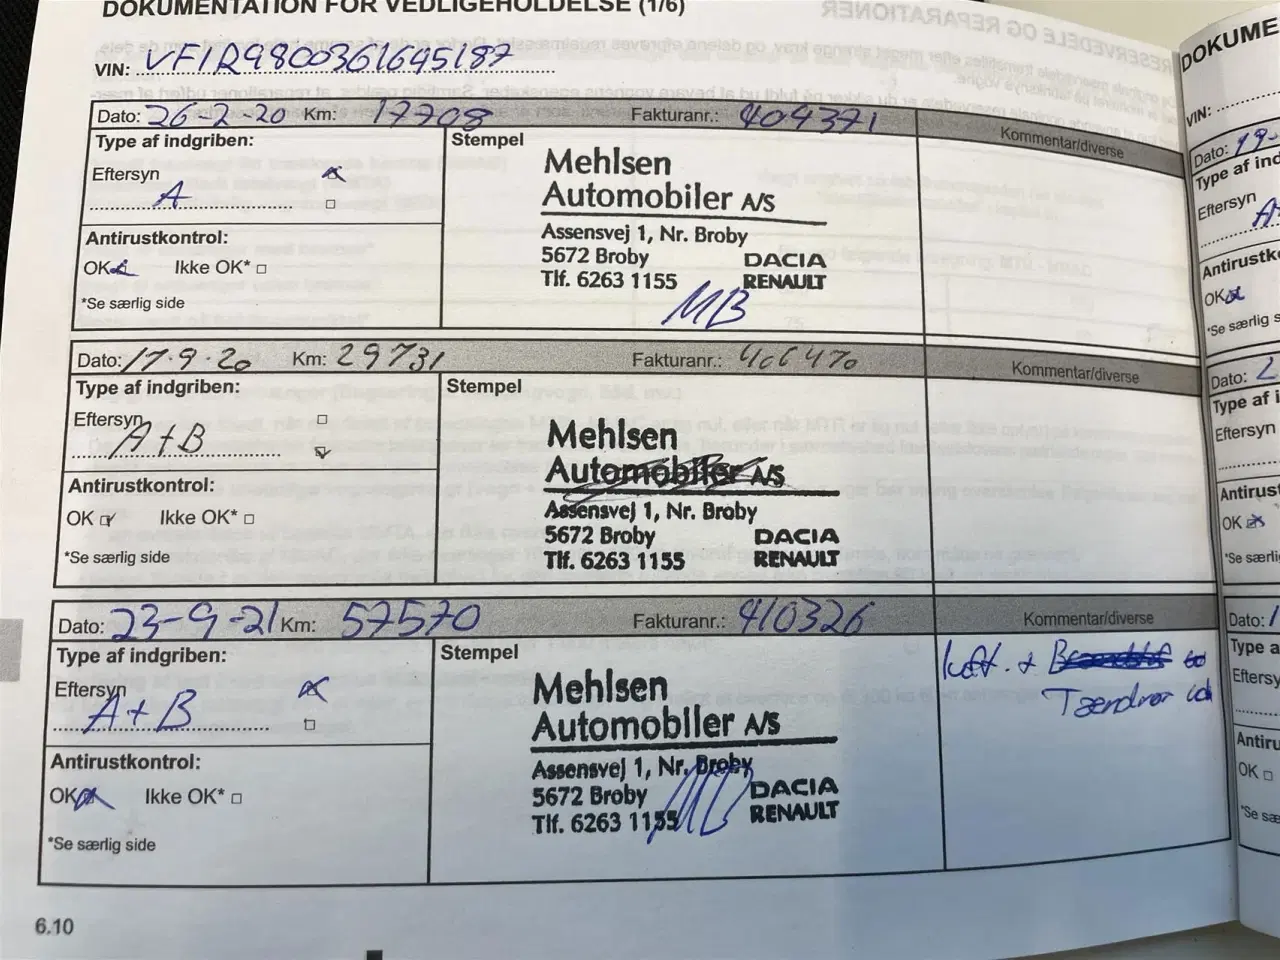 DOKUMENTATION FOR VEDLIGEHOLDELSE (1/6)
VIN: VF1R9800361645187
Dato: 26-2-20 Km: 17708 Fakturanr.: 404371
Kommentar/diverse
Type af indgriben:
Stempel
Eftersyn
A
Mehlsen
Automobiler A/S
Assensvej 1, Nr. Broby
5672 Broby DACIA
Tlf. 6263 1155 RENAULT
MB
Antirustkontrol:
OK Ikke OK*
*Se særlig side
Dato: 17-9-20 Km: 29731 Fakturanr.: 406470
Kommentar/diverse
Type af indgriben:
Stempel
Eftersyn
A+B
Mehlsen
Automobiler A/S
Assensvej 1, Nr. Broby
5672 Broby DACIA
Tlf. 6263 1155 RENAULT
Antirustkontrol:
OK Ikke OK*
*Se særlig side
Dato: 23-9-21 Km: 57570 Fakturanr.: 410326
Kommentar/diverse
Type af indgriben:
Stempel
Eftersyn
A+B
Mehlsen
Automobiler A/S
Assensvej 1, Nr. Broby
5672 Broby DACIA
Tlf. 6263 1155 RENAULT
MB
Luft. +
Tændrør
Antirustkontrol:
OK Ikke OK*
*Se særlig side
6.10
DOKUME
VIN:
Dato: 19-
Type af ind
Eftersyn
A
Antirustko
OK
*Se særlig s
Dato:
Type af i
Eftersyn
Antirust
OK
*Se særlig
Dato:
Type a
Eftersy
Antiru
OK
*Se sæ